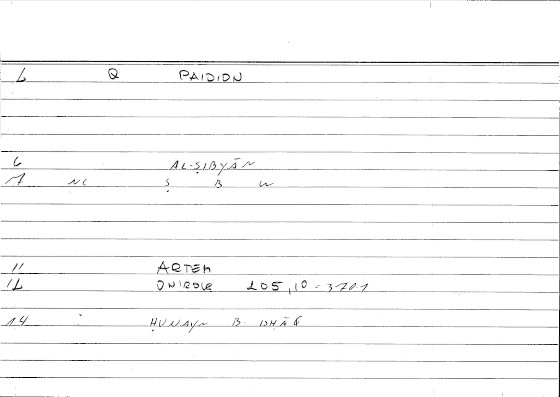 L Q PAIDION
6 AL-ṢIBYĀN
7 NC Ṣ B W
11 ARTEM
12 ONIROCR 205,10 = 3701
14 : ḤUNAYN B. ISḤĀQ